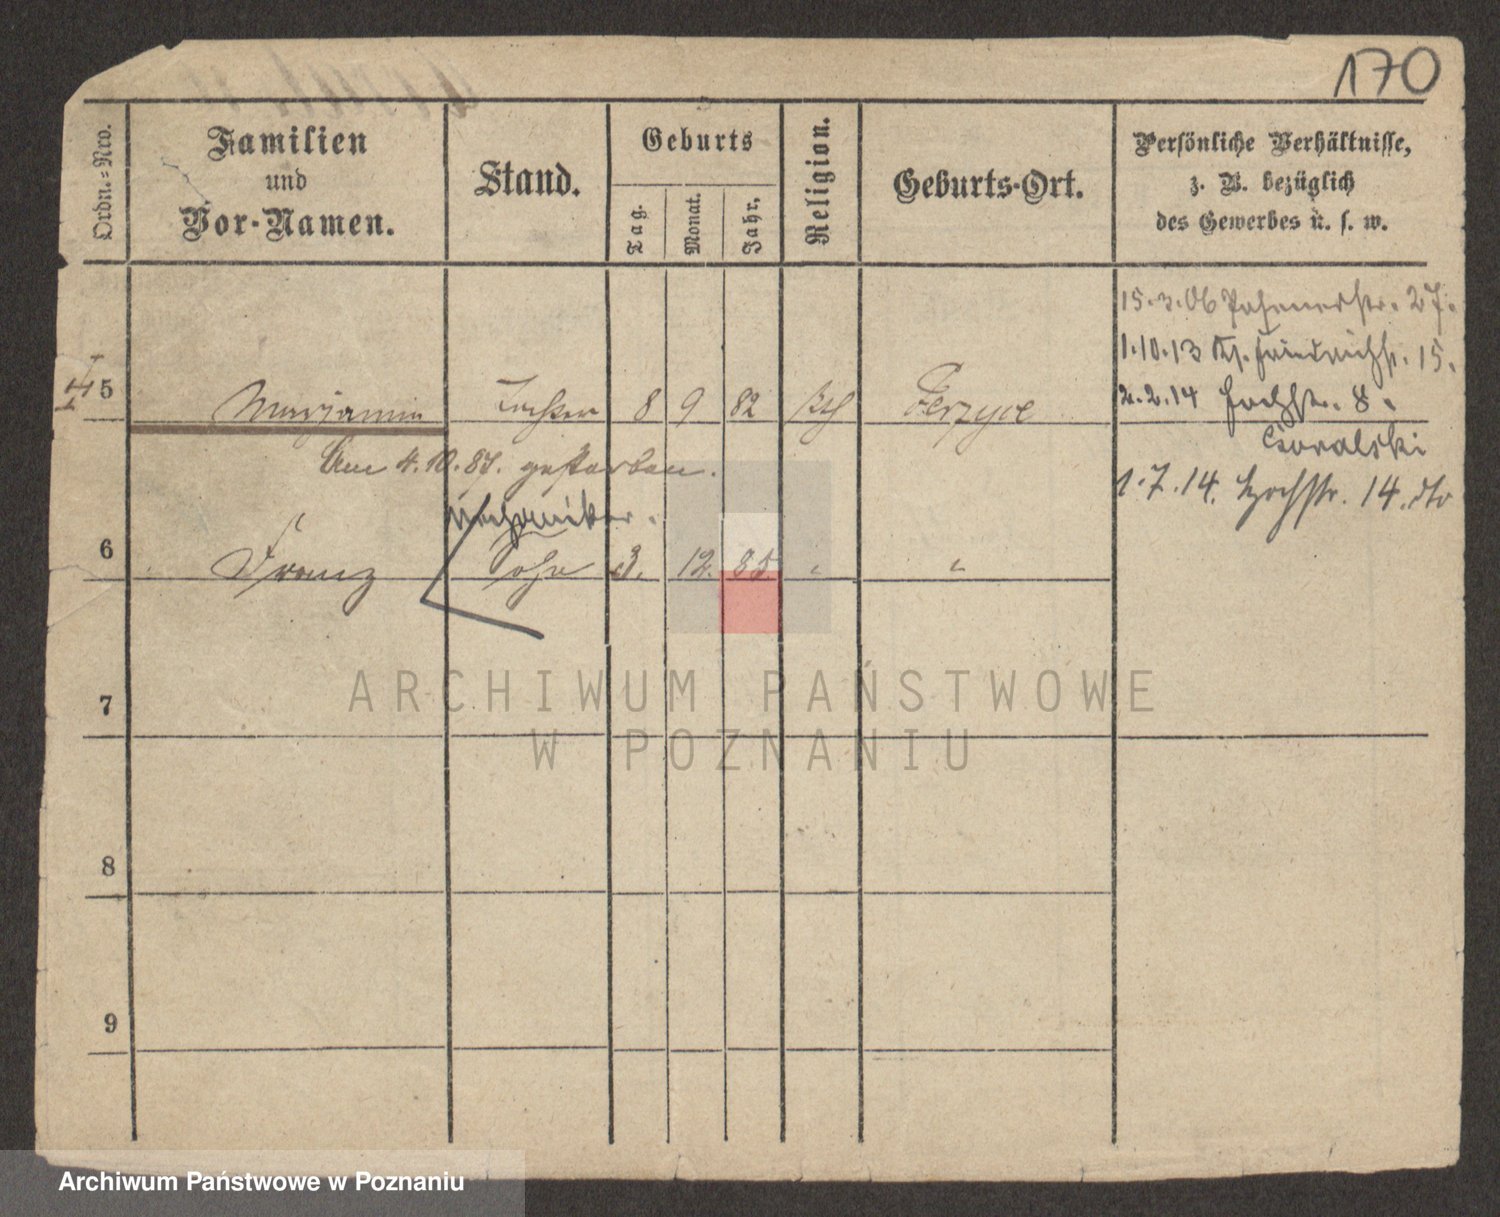 170
Ordn.=Nro.
Familien
und
Vor-Namen.
Stand.
Geburts
Tag.
Monat.
Jahr.
Religion.
Geburts-Ort.
Persönliche Verhältnisse,
z. B. bezüglich
des Gewerbes u. s. w.
15.3.06 27.
1.10.13 15.
5 Marjanna Tochter 8 9 82 kth Jerzyce
2.2.14 Hochstr. 8.
Goralski
Am 4.10.87. gestorben.
1.7.14. Hochstr. 14. dto
Mechaniker.
6 Franz Sohn 3. 12. 85 " "
7
ARCHIWUM PAŃSTWOWE
W POZNANIU
8
9
Archiwum Państwowe w Poznaniu